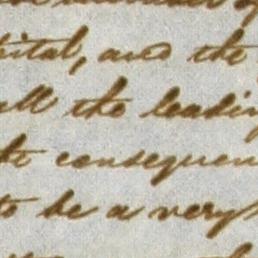 pital, and the
all the leading
the consequen
to be a very